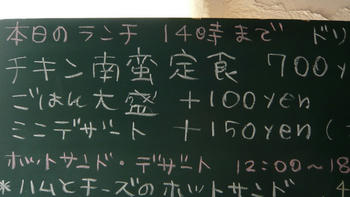 本日のランチ 14時まで ドリ
チキン南蛮定食 700y
ごはん大盛 +100yen
ミニデザート +150yen (
ホットサンド・デザート 12:00~18
*ハムとチーズのホットサンド 4